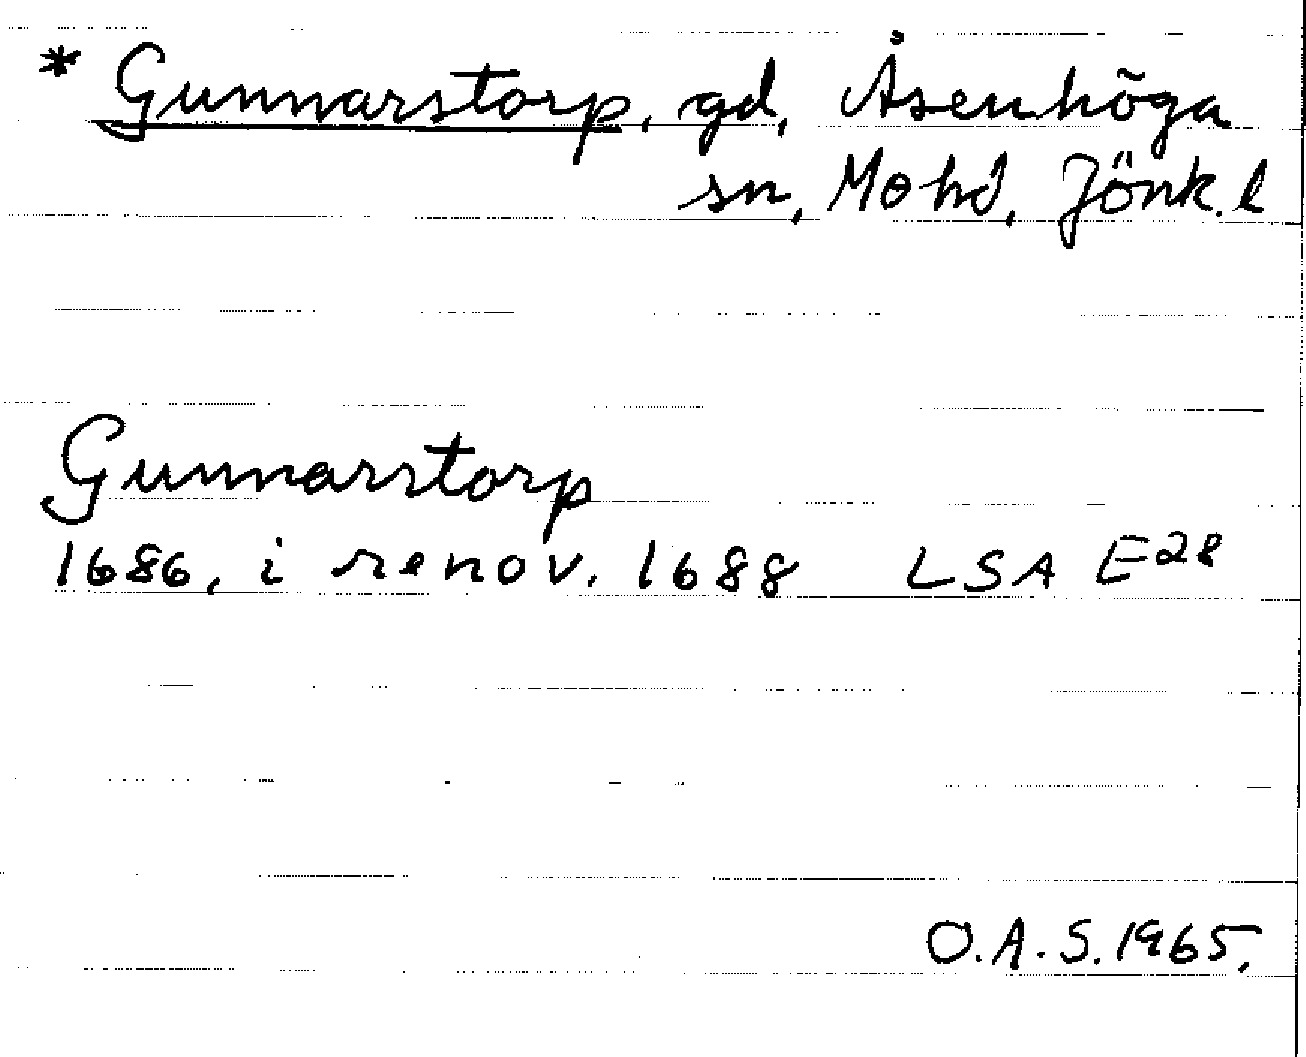 * Gunnarstorp, gd, Åsenhöga
sn, Mo hd, Jönk. l
Gunnarstorp
1686, i renov. 1688 LSA E28
O.A.S. 1965.